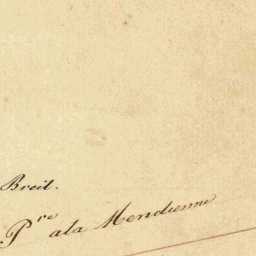 Breil.
P^re ala Meridienne